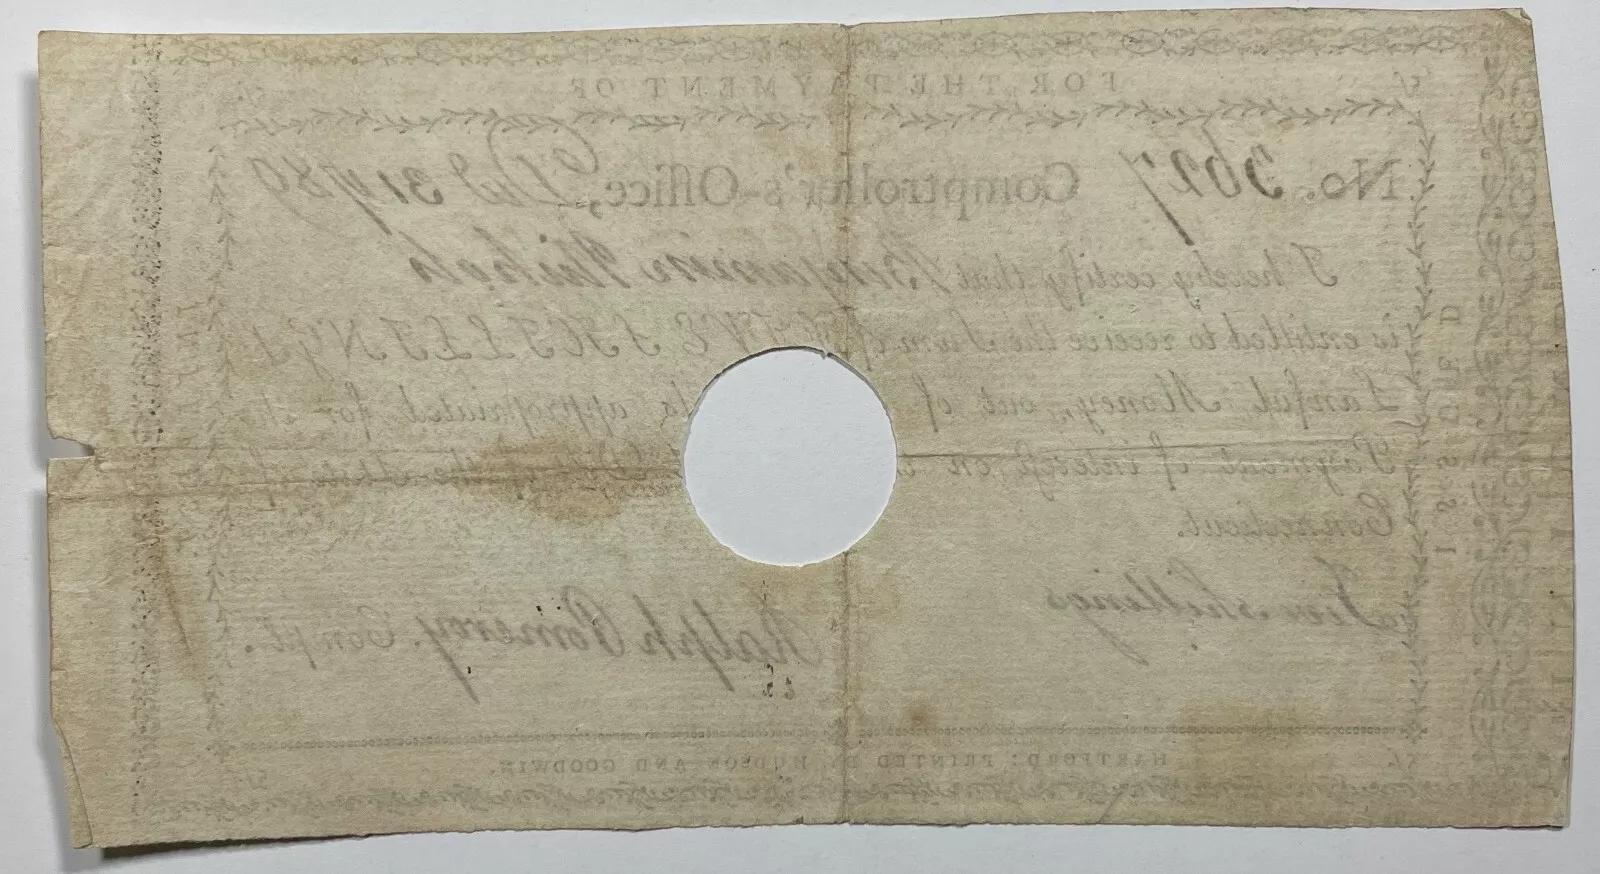 FOR THE PAYMENT OF
No. 3627 Comptroller's-Office, 31 1789
I hereby certify that Benjamin
is entitled to receive the Sum of FIVE SHILLINGS
Lawful Money, out of appropriated for
Payment of interest on the State of
Connecticut.
Five Shillings
Ralph Pomeroy. Compt.
5/
HARTFORD: PRINTED BY HUDSON AND GOODWIN.